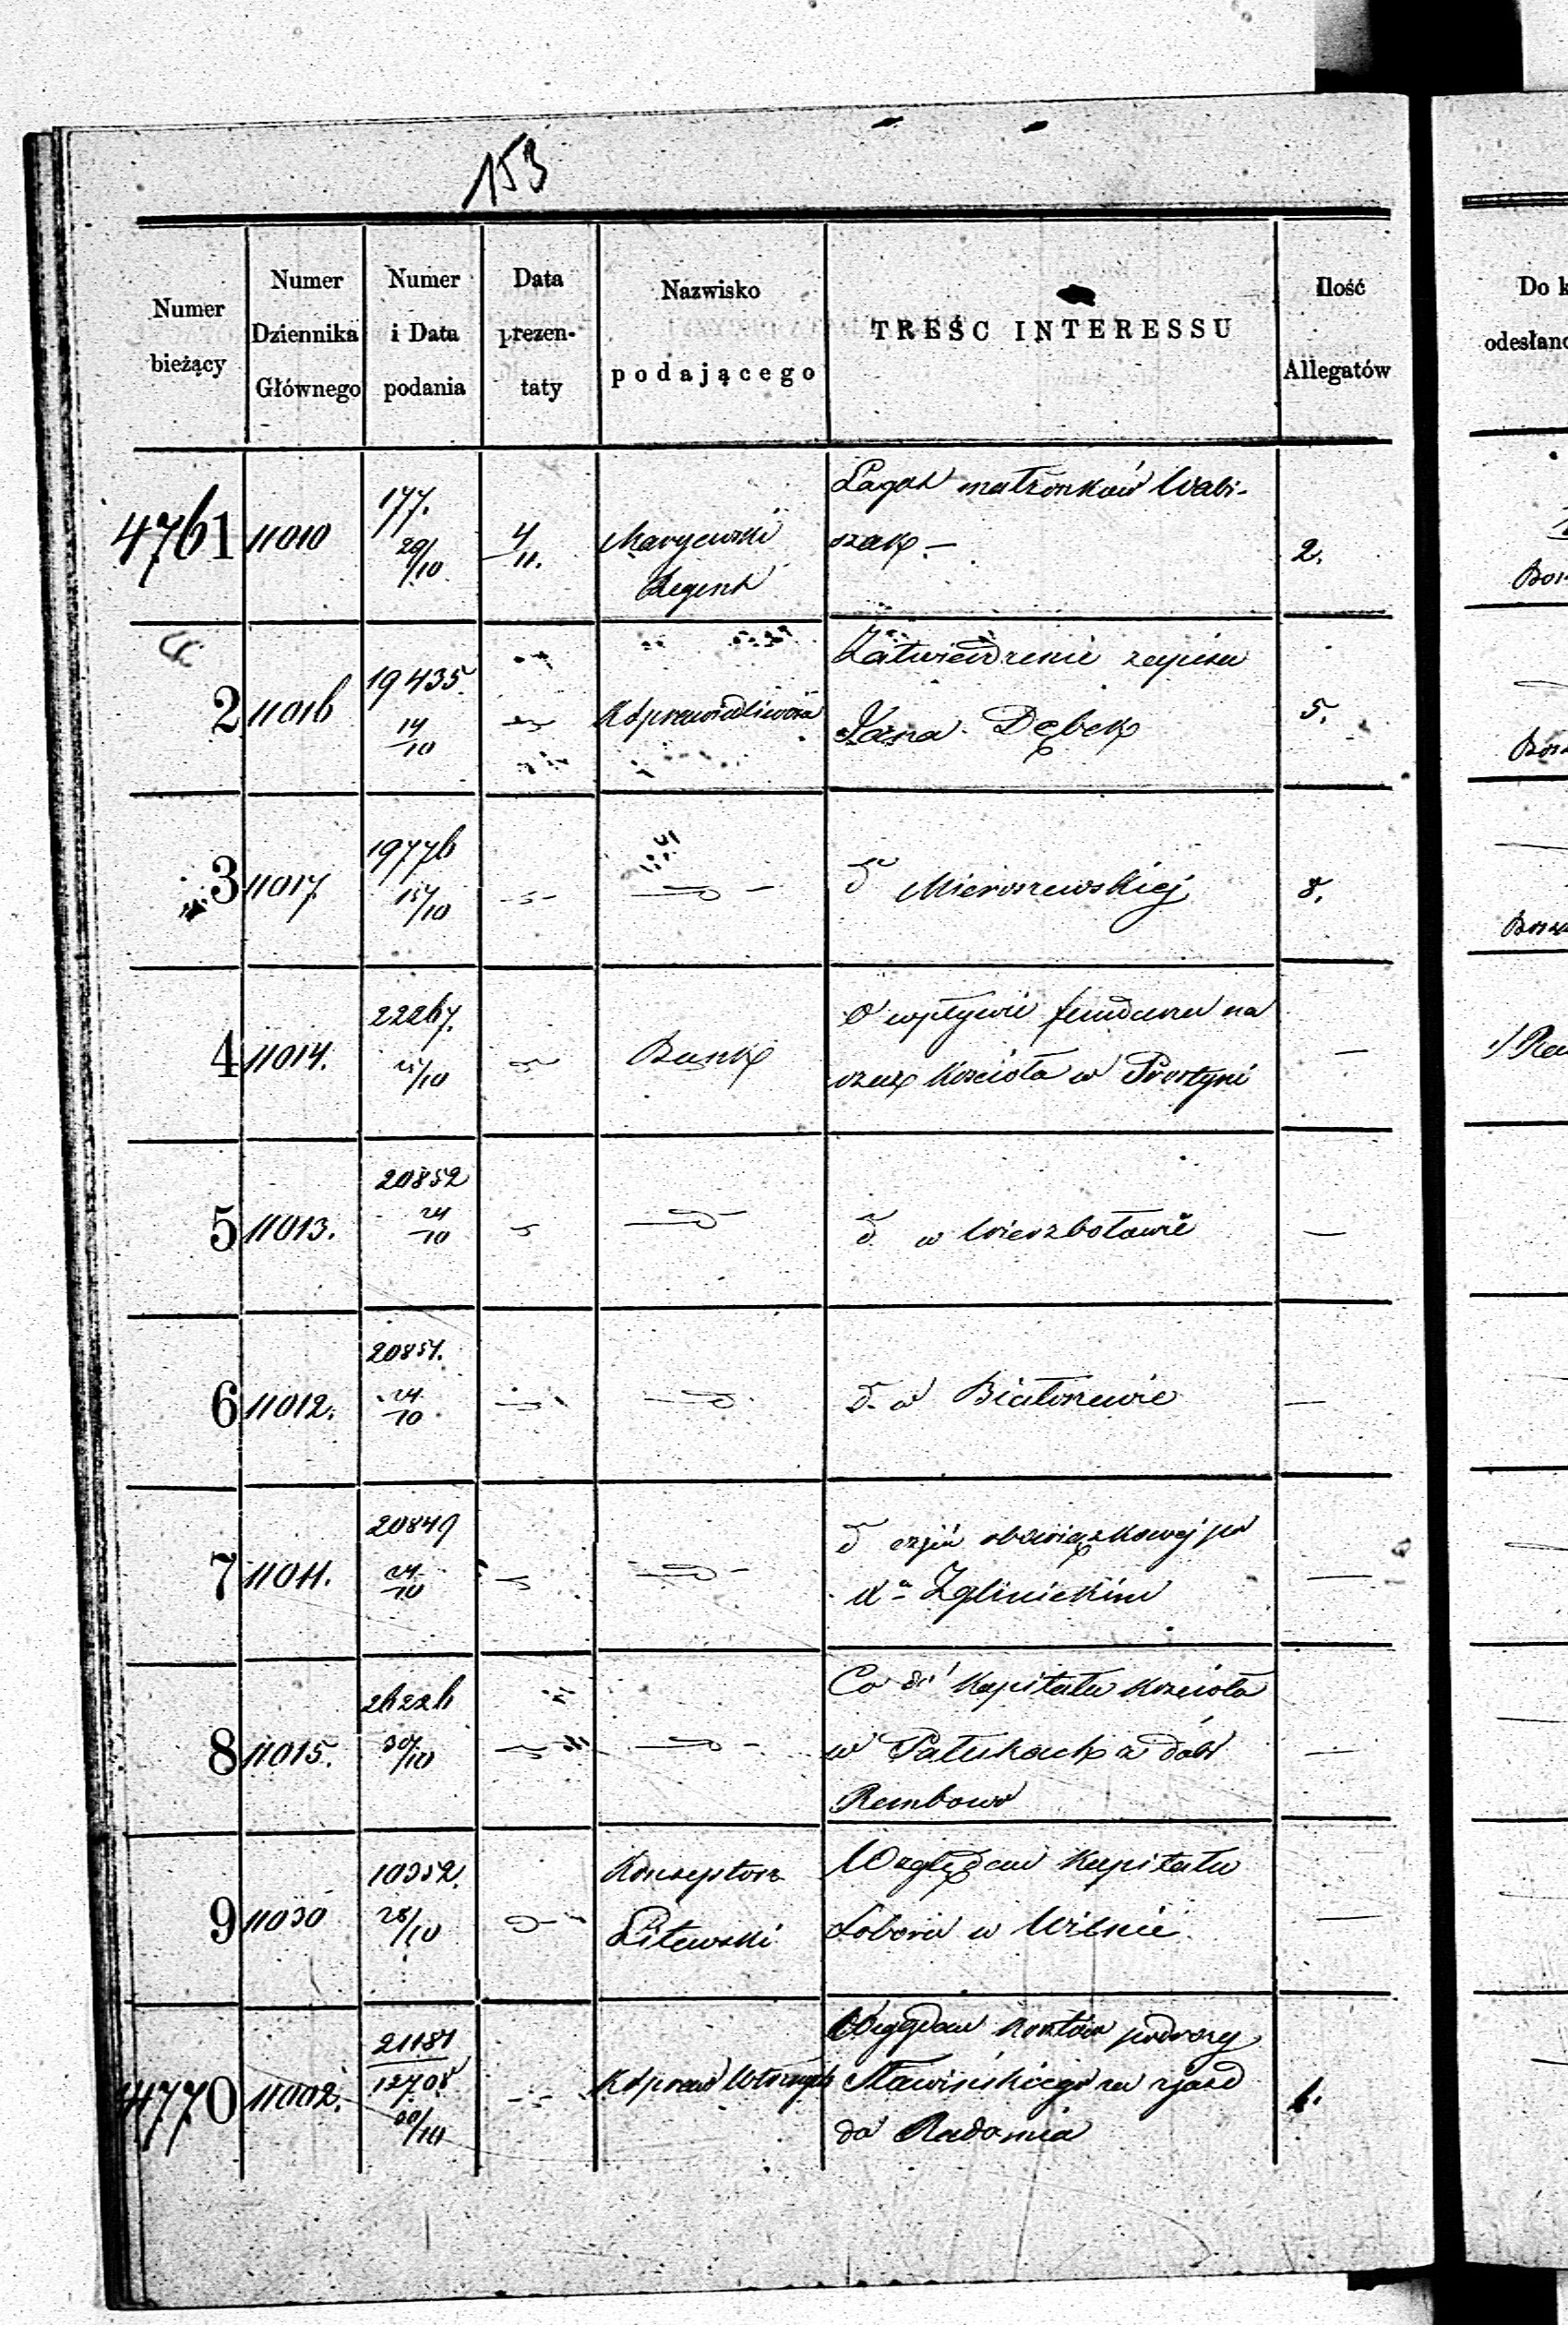 153
Numer bieżący
Numer Dziennika Głównego
Numer i Data podania
Data prezentaty
Nazwisko podającego
TREŚĆ INTERESSU
Ilość Allegatów
Do k
odesłano
4761 11010 177. 29/10 4/11. Maryewski Regent
Legat małżonków Wabi-
szak – 2.
2 11016 19435. 14/10 K Sprawiedliwości
Zatwierdzenie zapisu
Jana Dębek 5.
3 11017 19776 15/10
d° Mieroszewskiej 8.
4 11014. 22267. /10 Bank
O wpływie funduszu na
rzecz Kościoła w Prostyni —
5 11013. 20852 24/10
d° w Wierzbołowie —
6 11012. 20851. 24/10
d° w Białoszewie —
7 11011. 20849 24/10
d° obowiązkowej
Zglinickim —
8 11015. 26226 30/10
Co do Kapitału Kościoła
w Pałukach z dóbr
Rembowo —
9 11030 10352. 28/10 Konsystorz Litewski
Względem Kapitału
w Wilnie. —
4770 11002. 21181 12708 30/10
Względem kosztów podróży
Sławińskiego za zjazd
do Radomia 1.